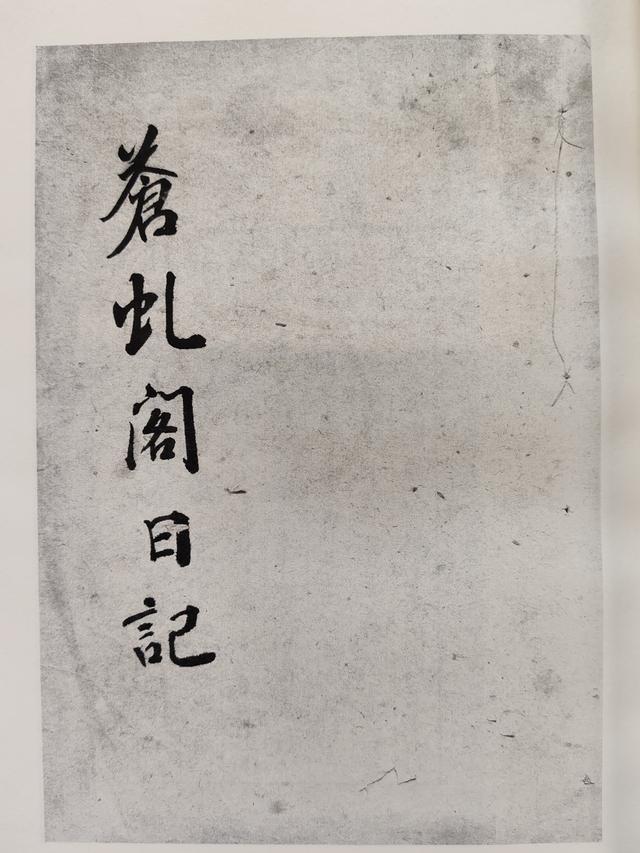 蒼虬閣日記